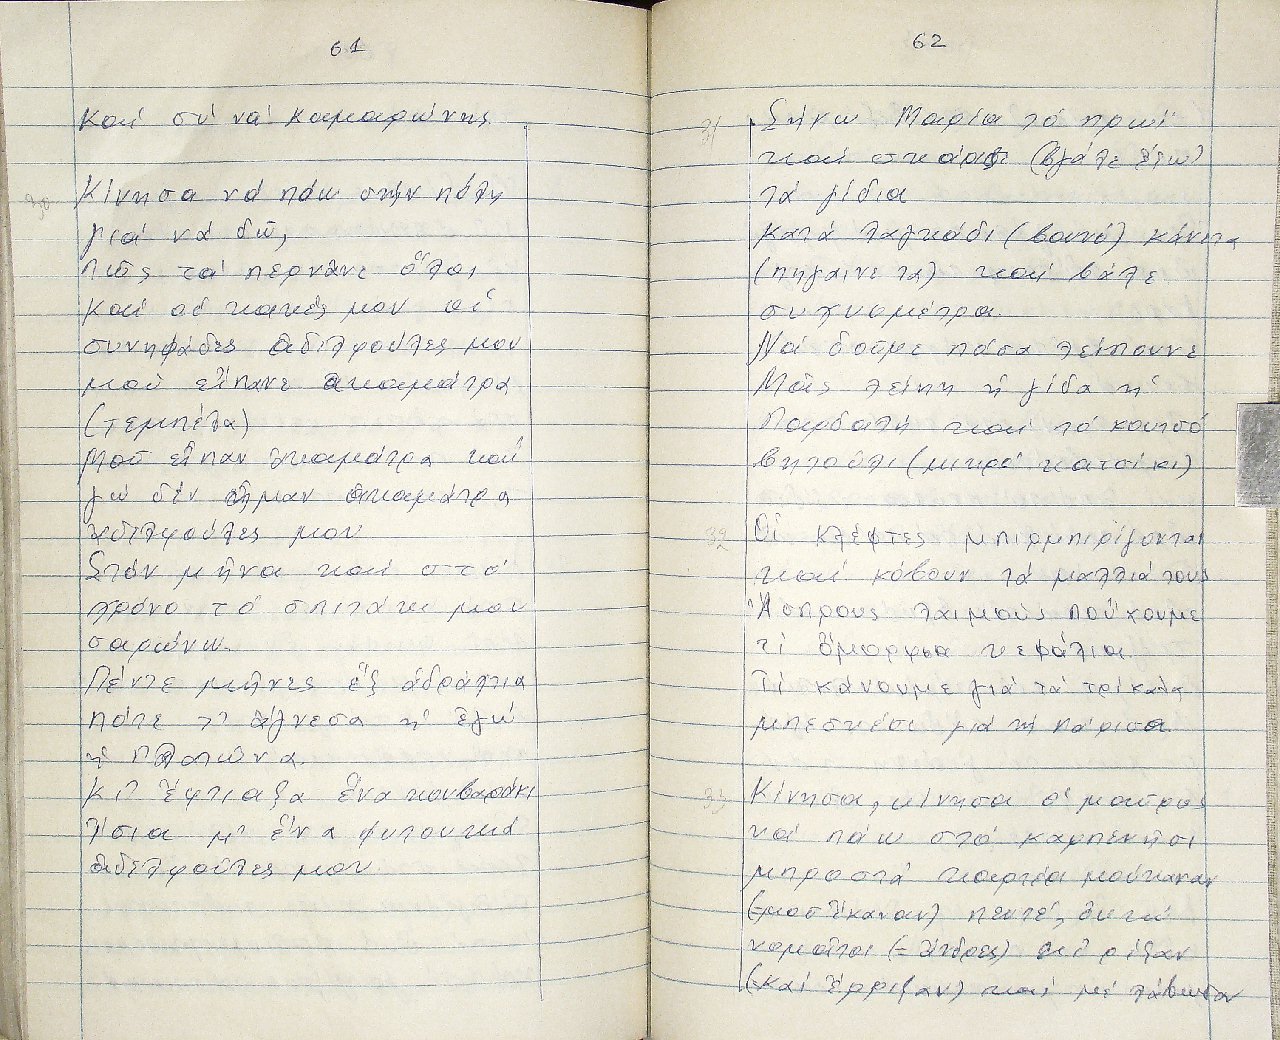 61
Καί σύ νά καμαρώνης
30
Κίνησα νά πάω στήν πόλη
γιά νά δῶ,
Πῶς τά περνᾶνε ὅλοι
Καί οἱ κακές μου οἱ
συνηφάδες ἀδελφοῦλες μου
μοῦ εἴπανε ἀκαμάτρα
(τεμπέλα)
Μοῦ εἶπαν ἀκαμάτρα καί
γώ δέν ἤμαν ἀκαμάτρα
ἀδελφοῦλες μου
Στόν μῆνα καί στό
χρόνο τό σπιτάκι μου
σαρώνω.
Πέντε μῆνες ἕξ ἀδράχτια
πότε τ' ἄγνεσα ἡ ἐγώ
ἡ
Κι' ἔφτιαξα ἕνα κουβαράκι
ἴσια μ' ἕνα
ἀδελφοῦλες μου
62
31
Σήκω Μαρία τό πρωί
καί σκάρσε (βγάλε ἔξω)
τά γίδια
κατά λαγκάδι (βουνό) κάνετα
(πήγαινέ τα) καί βάλε
συχνομέτρα.
Νά δοῦμε πόσα λείπουνε
Μᾶς λείπη ἡ γίδα ἡ
Παρδαλή καί τό κουτσό
βητούλι (μικρό κατσίκι)
32
Οἱ κλέφτες μπιρμπιρίζονται
καί κόβουν τά μαλλιά τους
Ἄσπρους λαιμούς ποὔχουμε
τί ὄμορφα κεφάλια.
Τί κάνουμε γιά τά τρίκαλα
μπεσκέσι γιά τή Λάρισα.
33
Κίνησα, κίνησα ὁ μαῦρος
νά πάω στό καρπενῆσι
μπροστά καρτέρι μοὔκαναν
(=μοῦ ἔκαναν) πεντέ, ὀκτώ
νομάτοι (= ἄνδρες) κι' ρίξαν
(=καί ἔρριξαν) καί μέ λάβωσαν